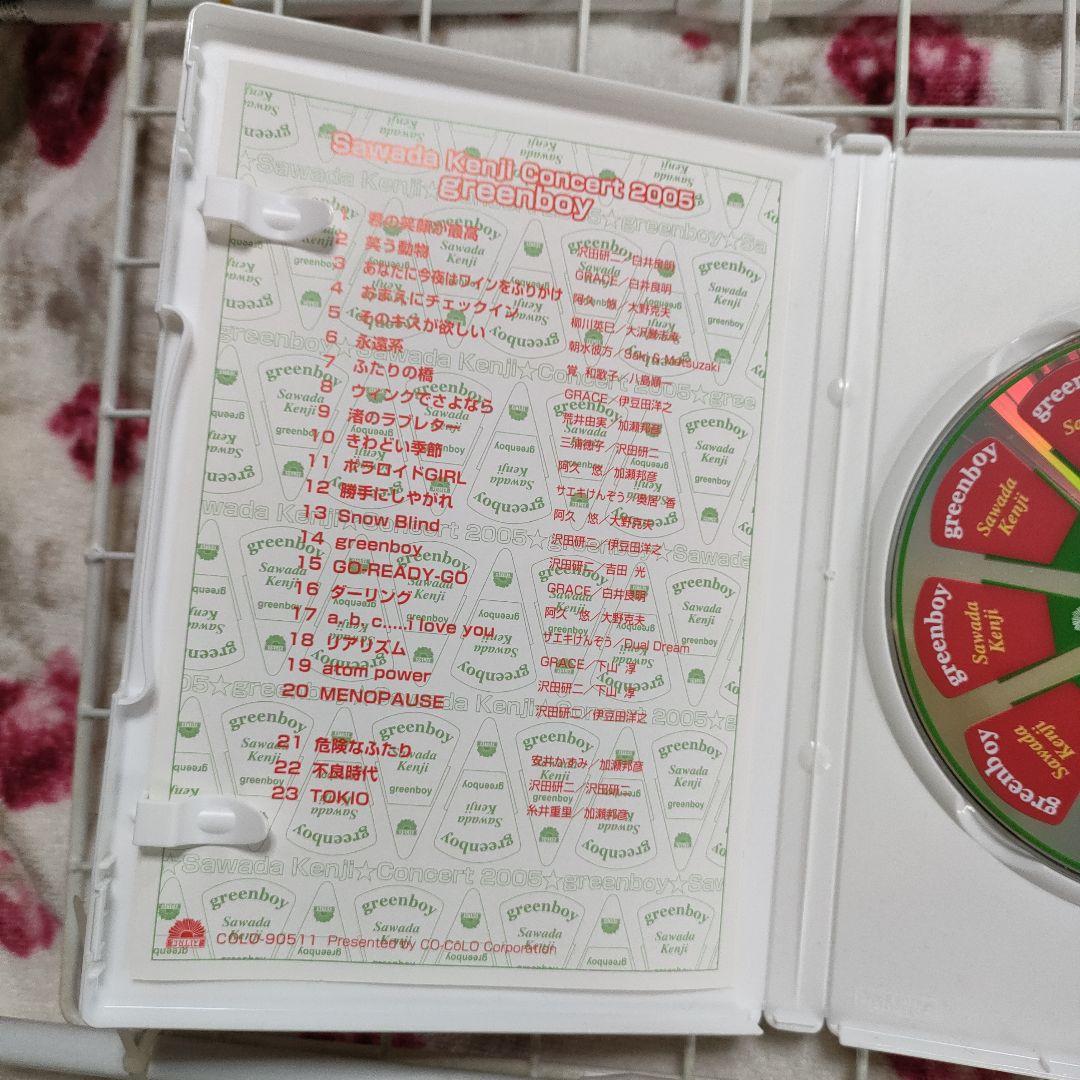 Sawada Kenji Concert 2005
greenboy
1 君の笑顔が最高 沢田研二/白井良明
2 笑う動物 GRACE/白井良明
3 あなたに今夜はワインをふりかけ 阿久 悠/大野克夫
4 おまえにチェックイン 柳川英巳/大沢誉志幸
5 そのキスが欲しい 朝水彼方/Saki & Matsuzaki
6 永遠系 覚 和歌子/八島順一
7 ふたりの橋 GRACE/伊豆田洋之
8 ウィンクでさよなら 荒井由実/加瀬邦彦
9 渚のラブレター 三浦徳子/沢田研二
10 きわどい季節 阿久 悠/加瀬邦彦
11 ポラロイドGIRL サエキけんぞう/奥居 香
12 勝手にしやがれ 阿久 悠/大野克夫
13 Snow Blind 沢田研二/伊豆田洋之
14 greenboy 沢田研二/吉田 光
15 GO-READY-GO GRACE/白井良明
16 ダーリング 阿久 悠/大野克夫
17 a, b, c.....i love you サエキけんぞう/Dual Dream
18 リアリズム GRACE/下山 淳
19 atom power 沢田研二/下山 淳
20 MENOPAUSE 沢田研二/伊豆田洋之
21 危険なふたり 安井かずみ/加瀬邦彦
22 不良時代 沢田研二/沢田研二
23 TOKIO 糸井重里/加瀬邦彦
COLO-90511 Presented by CO-CóLO Corporation
greenboy
Sawada
Kenji
greenboy
Sawada
Kenji
greenboy
Sawada
Kenji